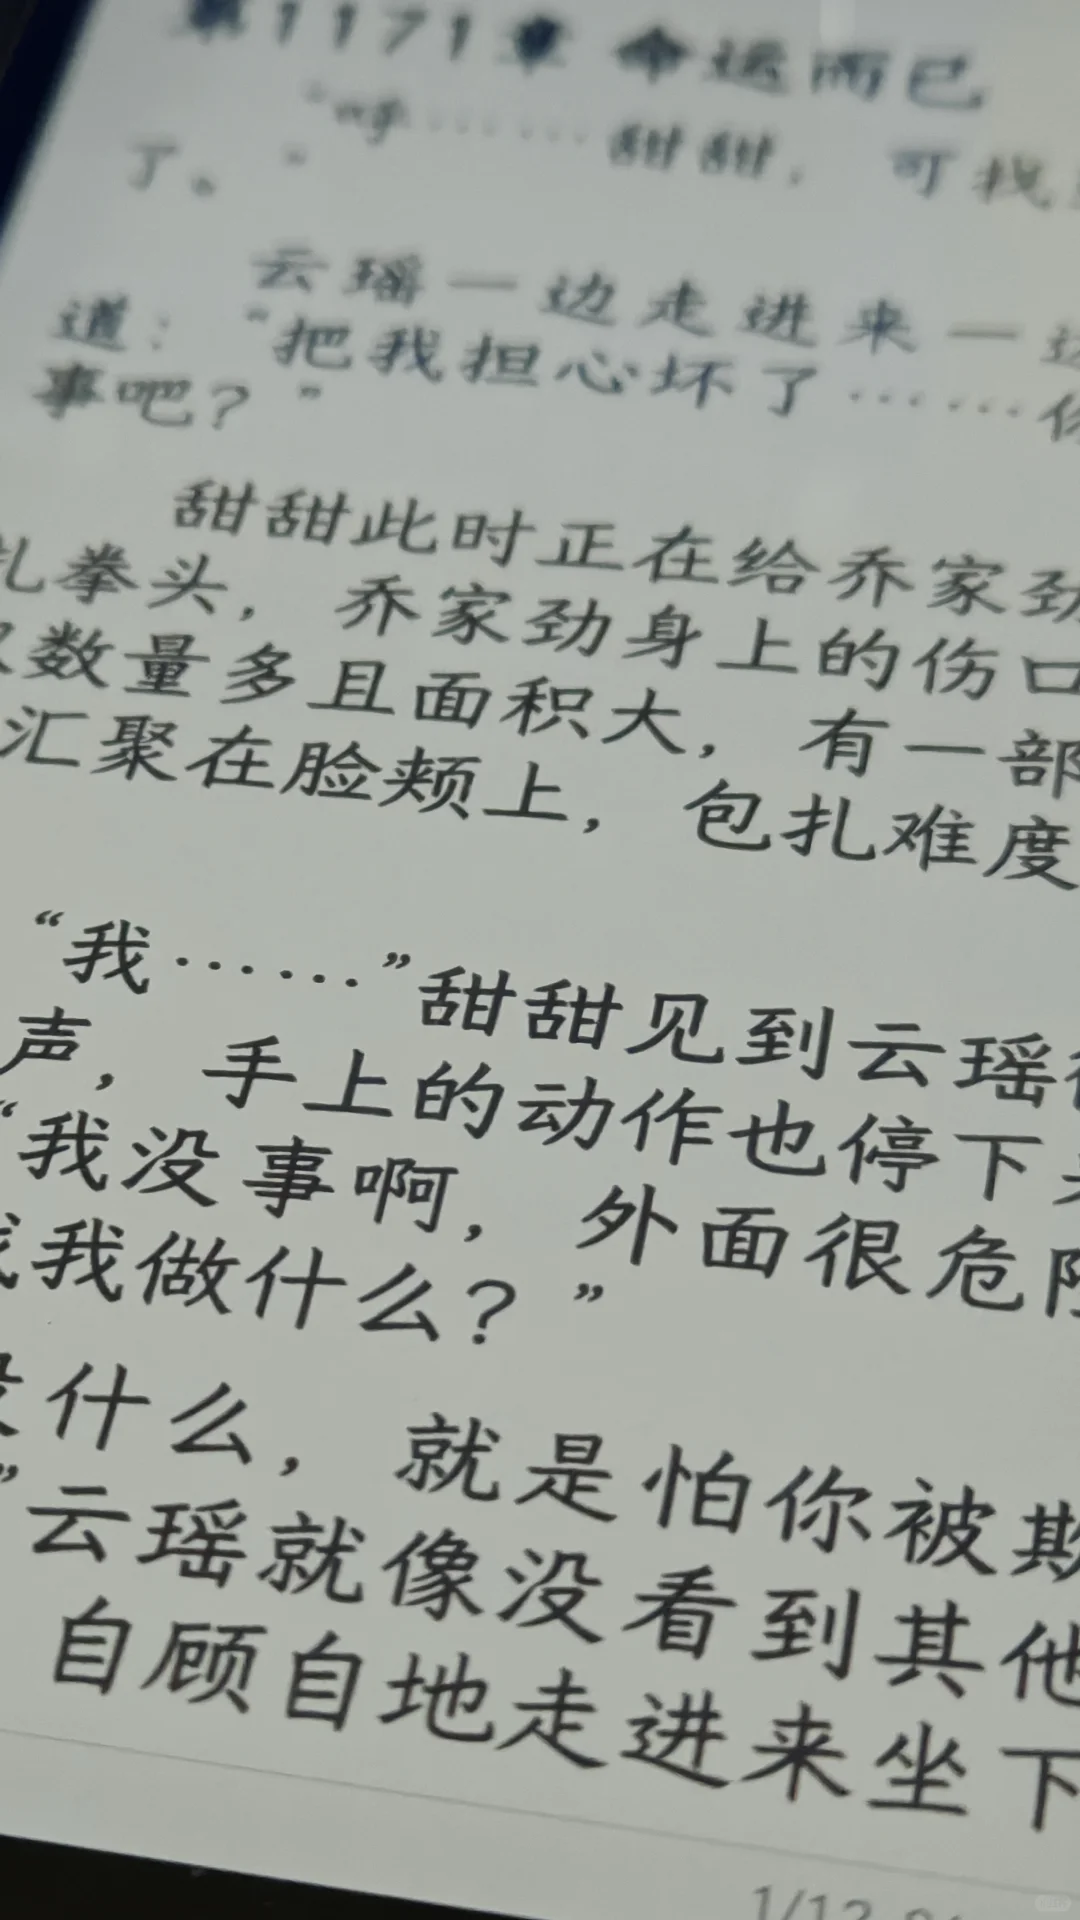 第1171章 命运而已
“呼……甜甜，可找
了。”
云瑶一边走进来一边
道：“把我担心坏了……你
事吧？”
甜甜此时正在给乔家劲
扎拳头，乔家劲身上的伤口
数量多且面积大，有一部
汇聚在脸颊上，包扎难度
“我……”甜甜见到云瑶
声，手上的动作也停下
“我没事啊，外面很危险
我做什么？”
没什么，就是怕你被欺
”云瑶就像没看到其他
自顾自地走进来坐下
1/12